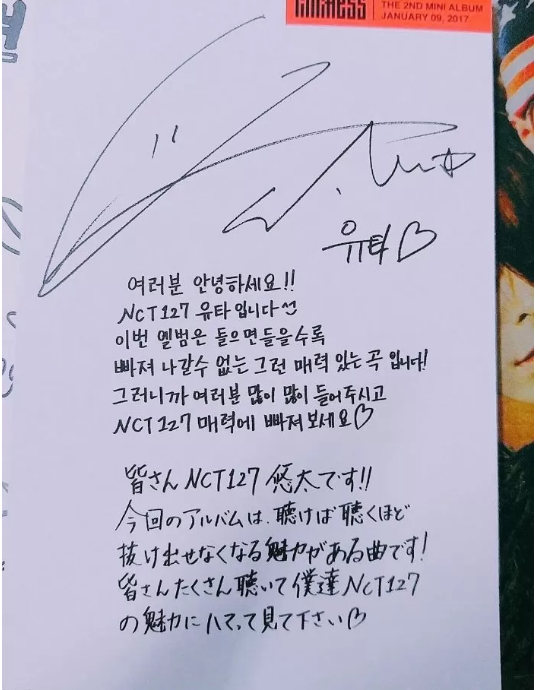 THE 2ND MINI ALBUM
JANUARY 09, 2017
유타♡
여러분 안녕하세요!!
NCT127 유타입니다
이번 엘범은 들으면들을수록
빠져 나갈수 없는 그런 매력 있는 곡 입니다!
그러니까 여러분 많이 많이 들어주시고
NCT127 매력에 빠져보세요♡
皆さん NCT127 悠太です!!
今回のアルバムは、聴けば聴くほど
抜け出せなくなる魅力がある曲です!
皆さんたくさん聴いて僕達NCT127
の魅力にハマって見て下さい♡